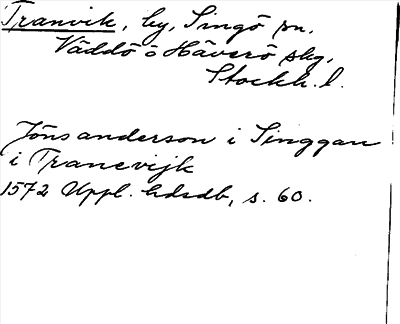 Tranvik, by, Singö sn,
Väddö o Häverö skg,
Stockh. l.
Jöns anderson i Singgan
i Tranevijk
1572 Uppl. hdsdb, s. 60.